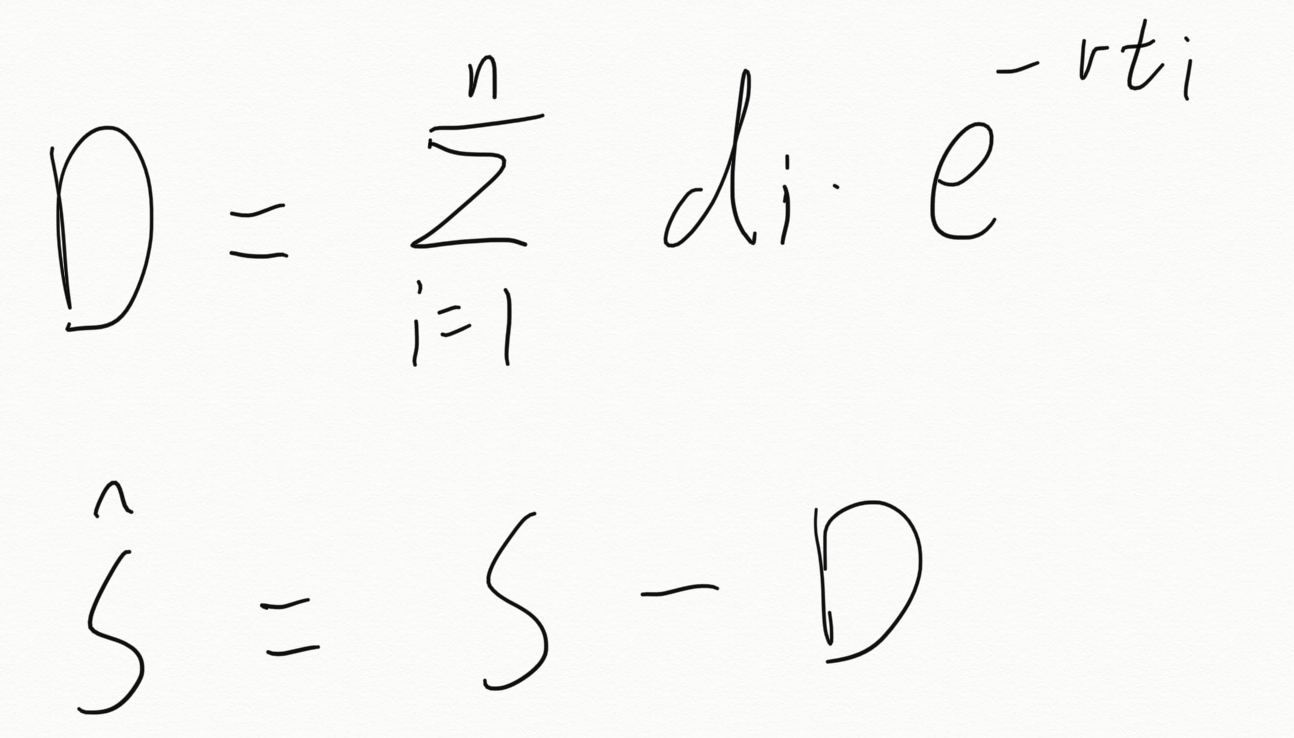 D = \sum_{i=1}^{n} d_i \cdot e^{-rt_i}
\hat{S} = S - D